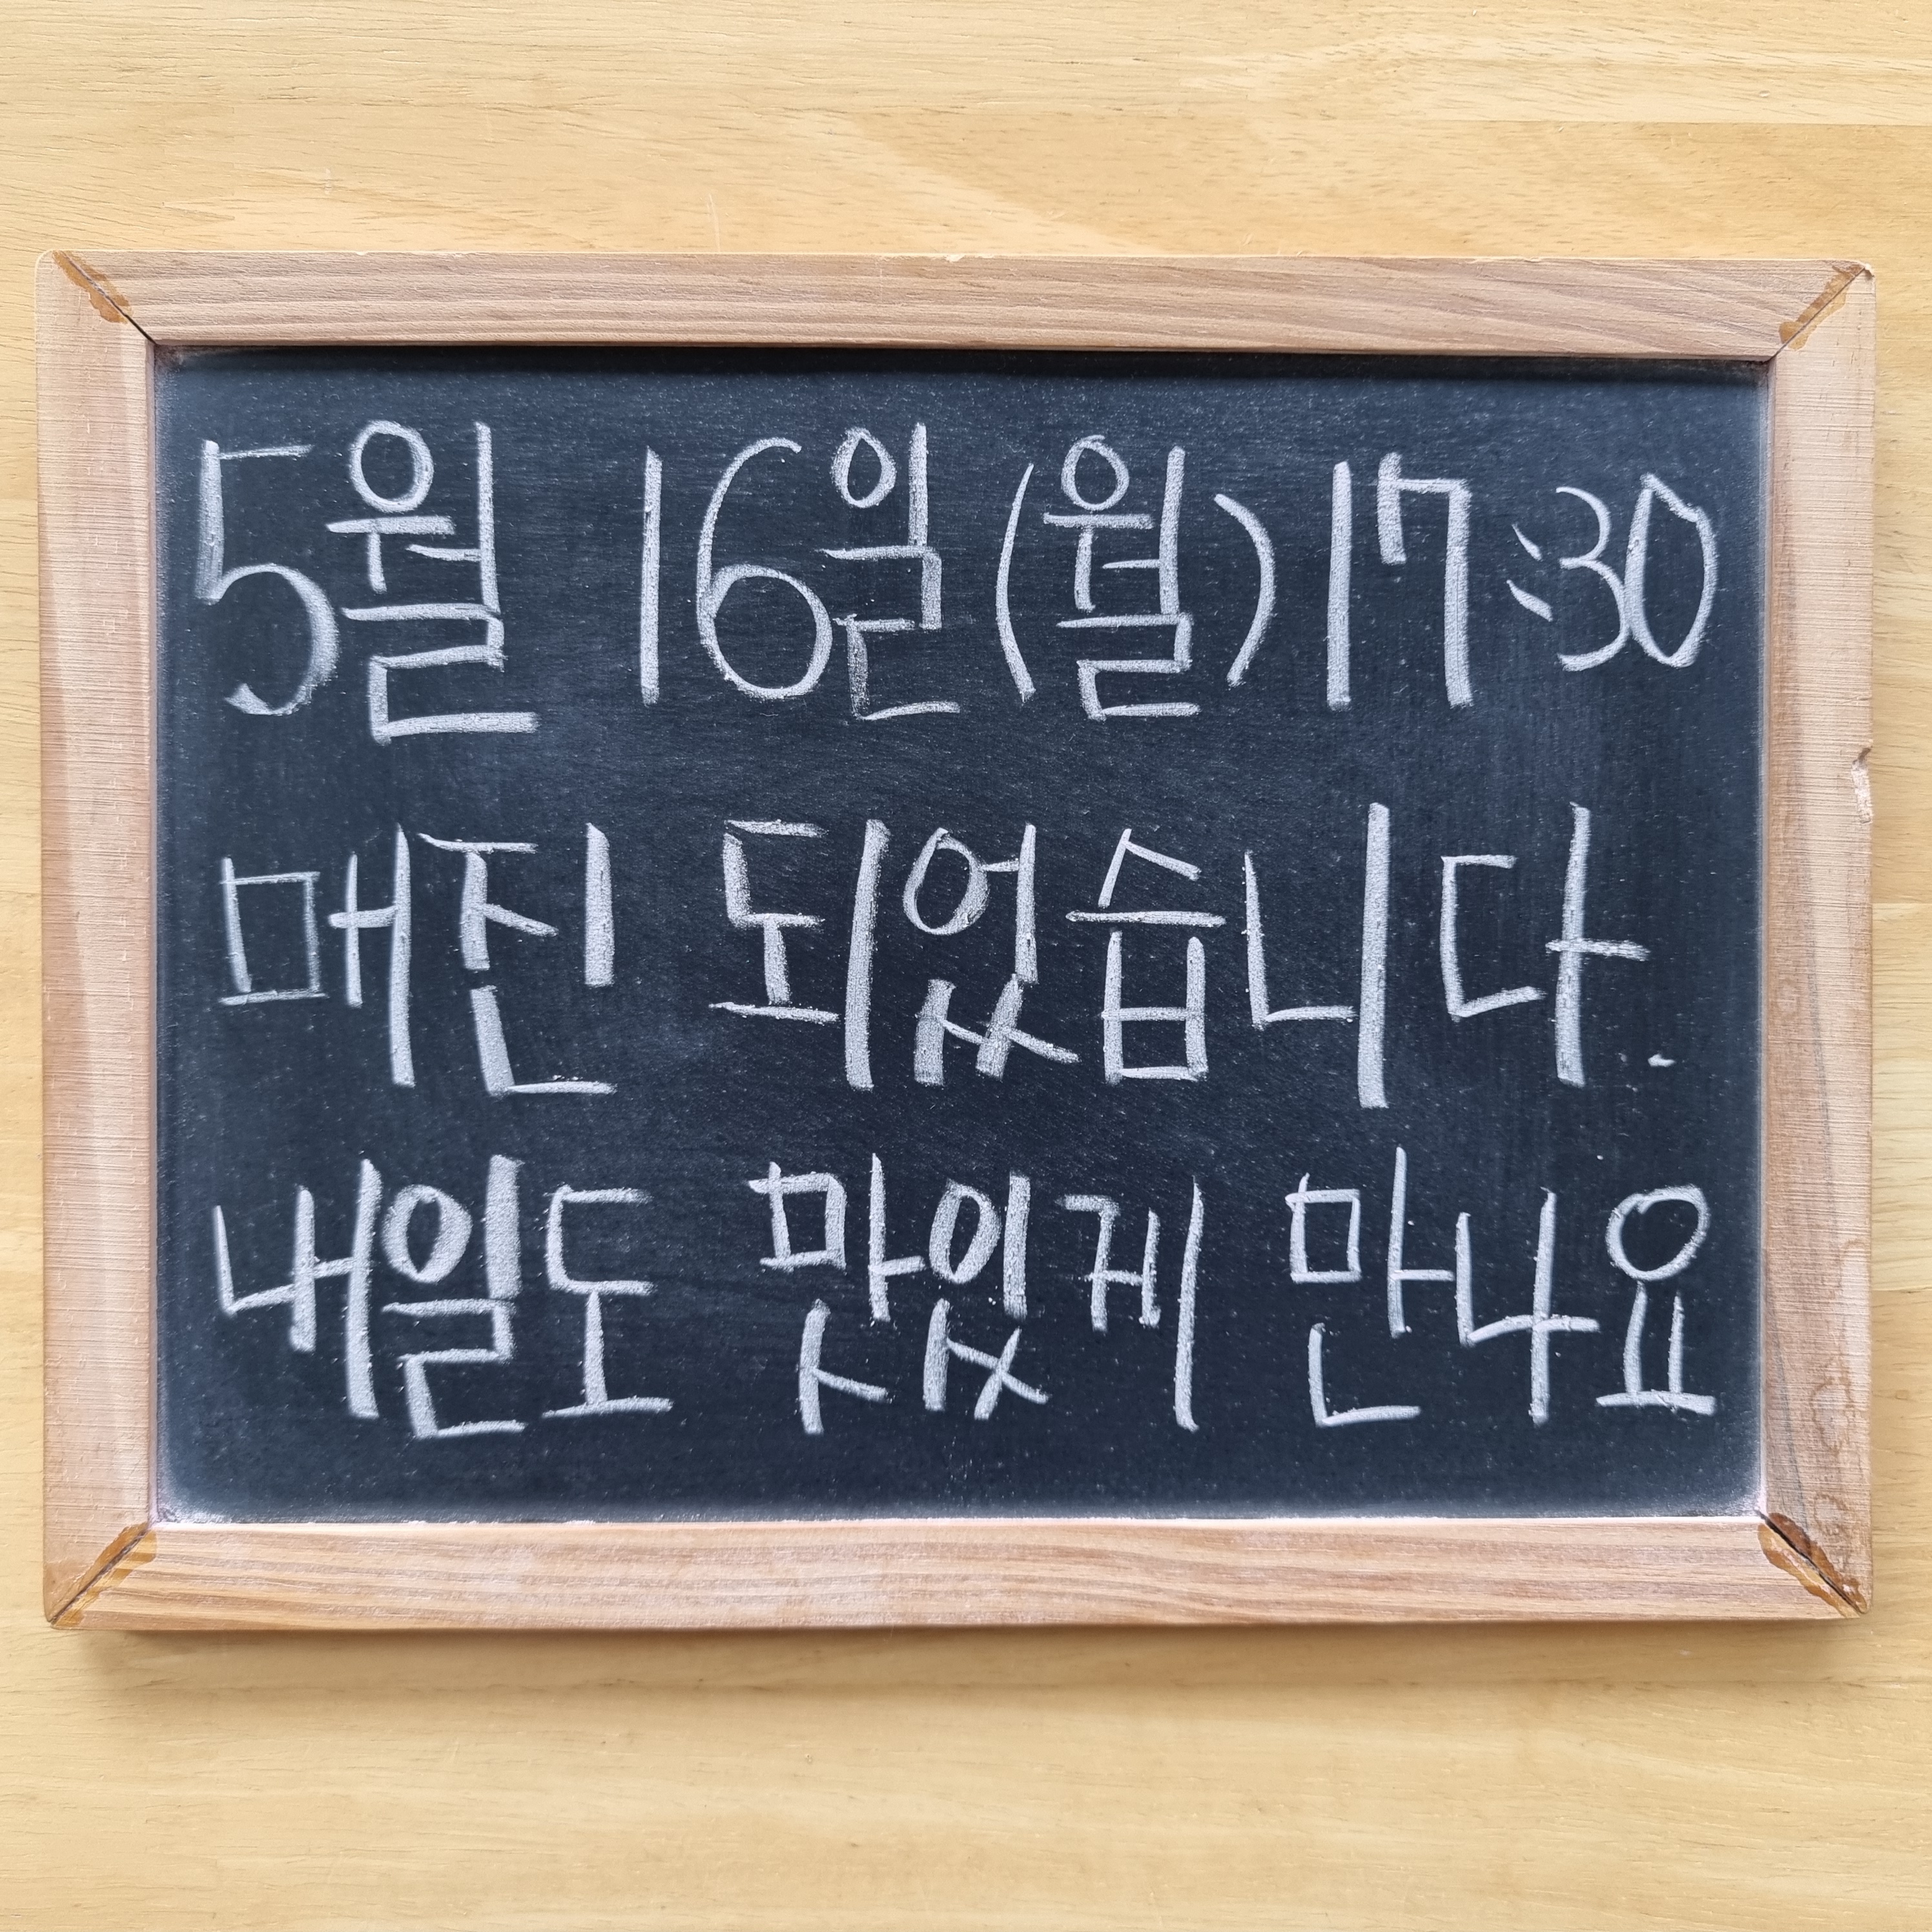 5월 16일(월) 17:30
매진 되었습니다.
내일도 맛있게 만나요